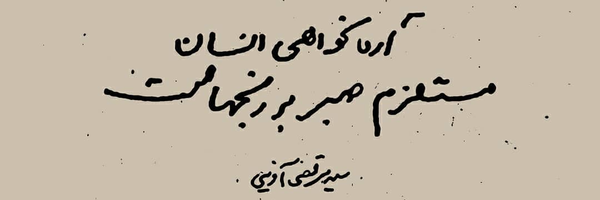 آرمانخواهی انسان
مستلزم صبر بر رنجهاست
سید مرتضی آوینی